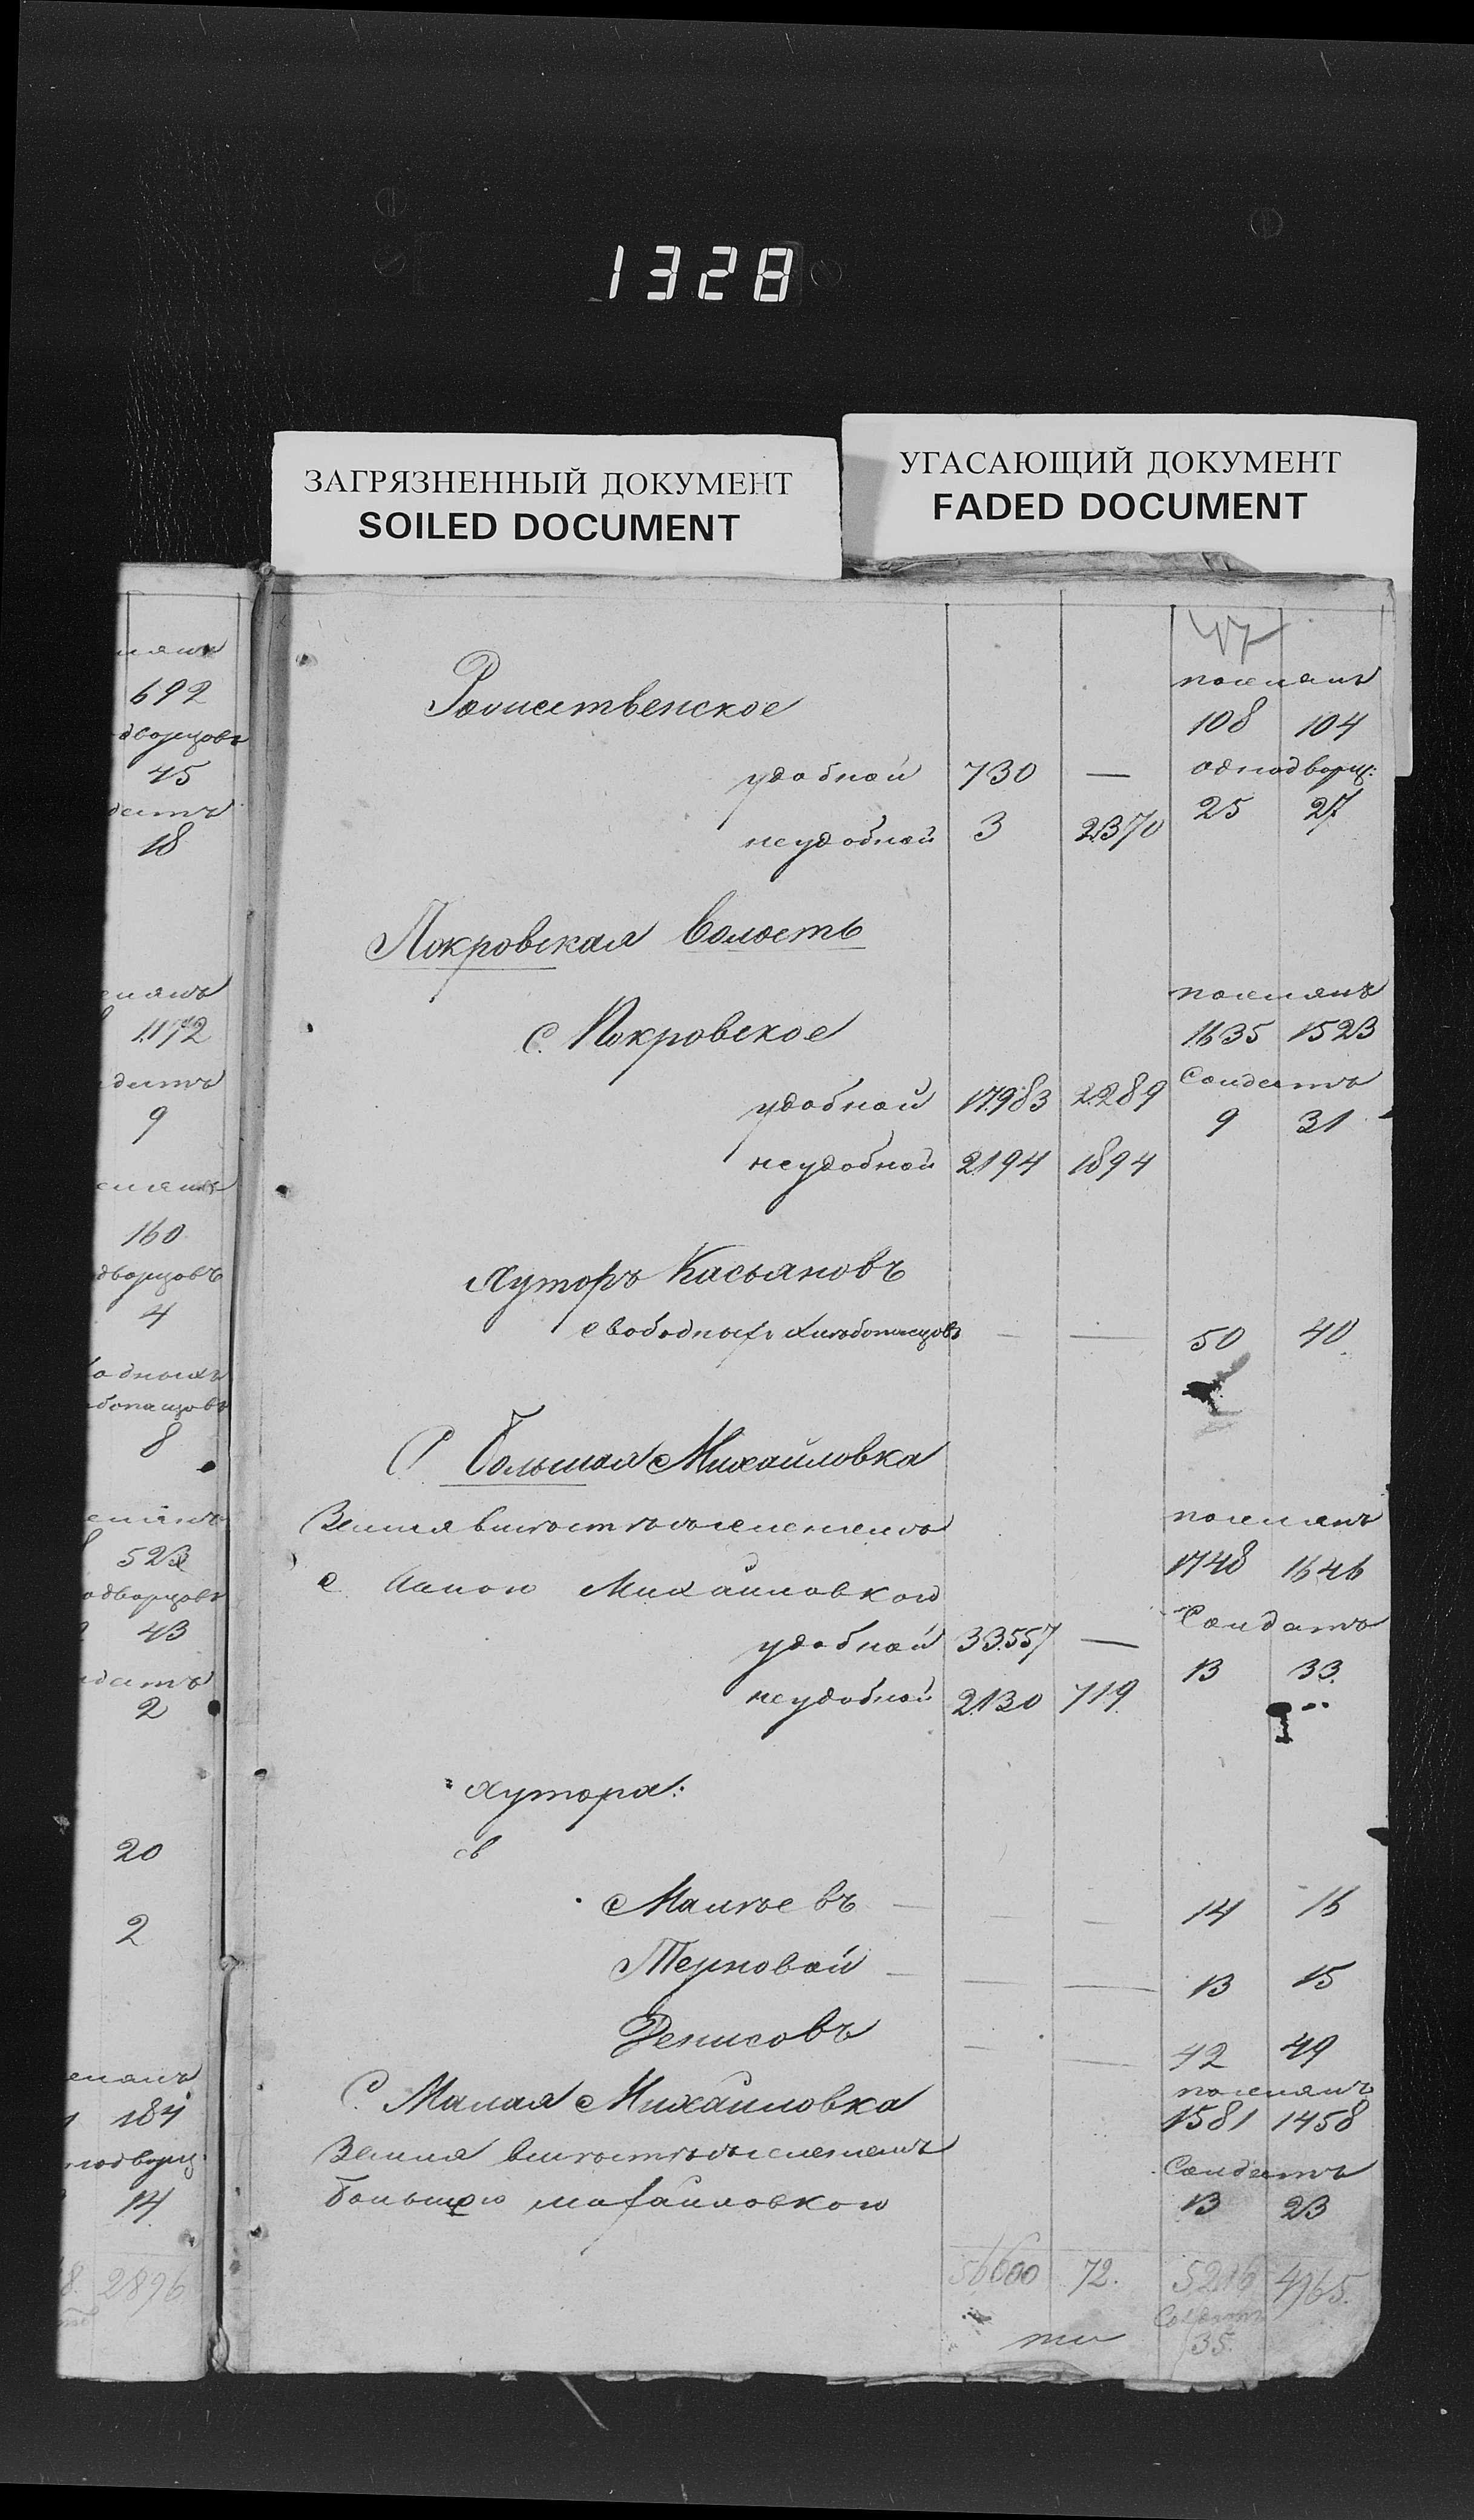 1328
ЗАГРЯЗНЕННЫЙ ДОКУМЕНТ
SOILED DOCUMENT
УГАСАЮЩИЙ ДОКУМЕНТ
FADED DOCUMENT
692
дворцовъ
45
датъ
18
елянъ
1172
датъ
9
елянъ
160
дворцовъ
4
однихъ
бопашцовъ
8
елянъ
523
одворцовъ
43
датъ
2
20
2
елянъ
184
нодворц:
14
2896
47
поселянъ
Рождественское 108 104
удобной 730 — однодворц:
неудобной 3 2370 25 27
Покровская волость
поселянъ
с. Покровское 1635 1523
удобной 17983 2289 Солдатъ
9 31
неудобной 2194 1894
Хуторъ Касьяновъ
свободныхъ хлѣбопашцовъ — — 50 40
С. Большая Михайловка
Земля вмѣстѣ поселянъ
с Малою Михайловкою 1748 1646
удобной 33557 — Солдатъ
13 33
неудобной 2130 719
Хутора:
св
Малѣевъ — — — 14 16
Терновой — — — 13 15
Денисовъ — — 42 49
С. Малая Михайловка поселянъ
1581 1458
Земля вмѣстѣ Солдатъ
большою михайловкою 13 23
56600 72. 5216 4965.
Солдатъ
35.